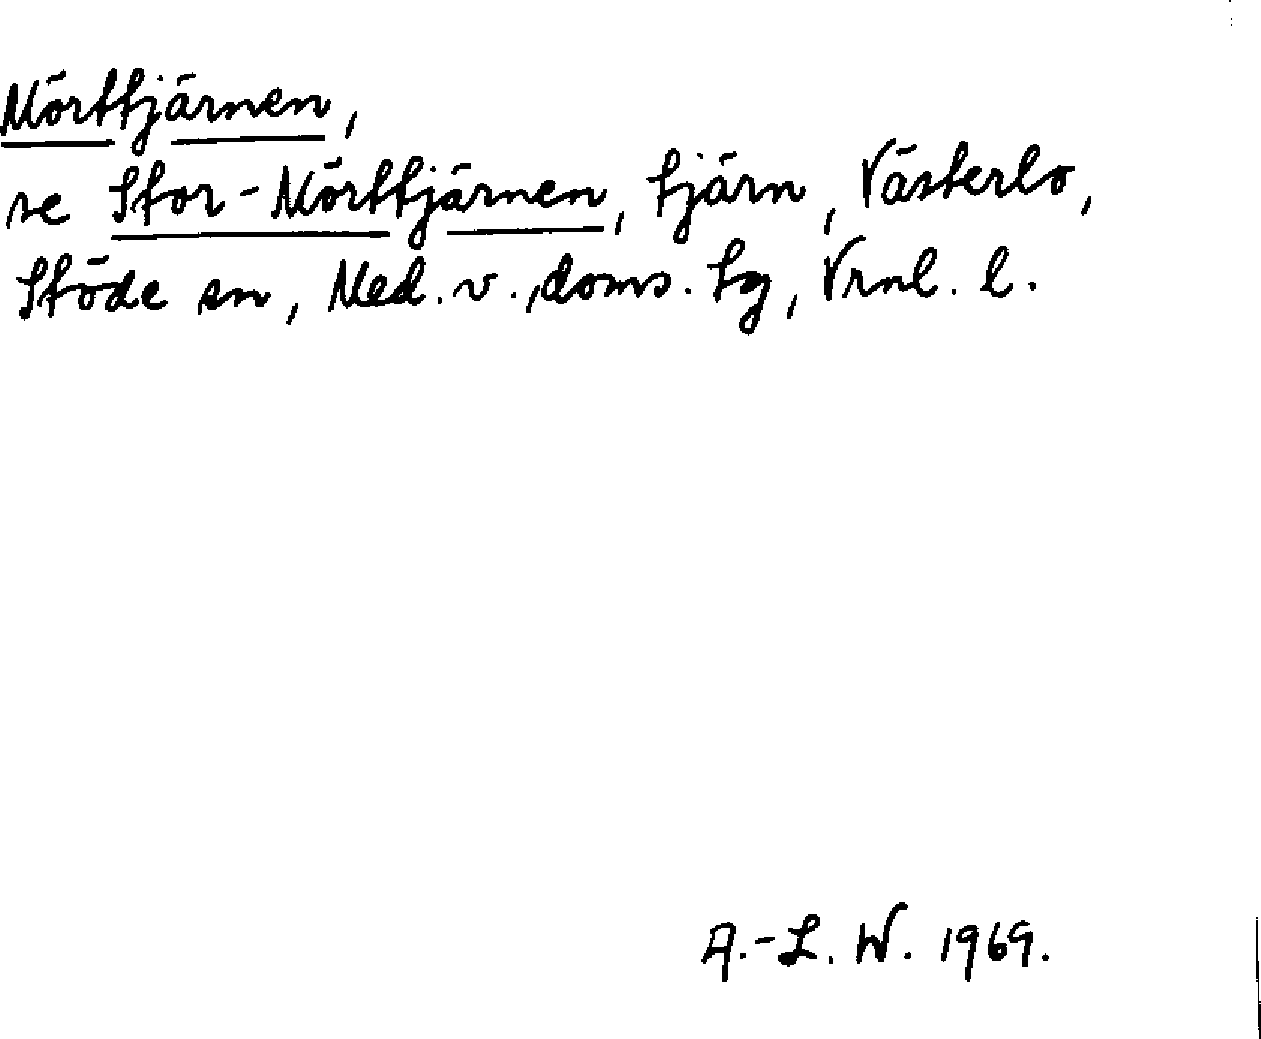 Mörttjärnen,
se Stor-Mörttjärnen, tjärn, Västerlo,
Stöde sn, Med. v., doms. tg, Vrnl. l.
A.-L. W. 1969.